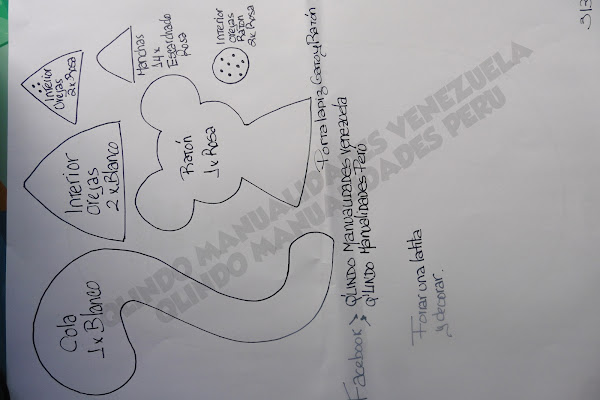 Interior
Orejas
2 x Rosa
Manchas
14 x
Escarchado
Rosa
Interior
orejas
Ratón
2x Rosa
Interior
orejas
2 x Blanco
Ratón
1 x Rosa
Cola
1 x Blanco
Porta lapiz Gato y Ratón
Facebook > QLINDO Manualidades Venezuela
QLINDO Manualidades Perú
Forrar una latita
y decorar.
3/3
QLINDO MANUALIDADES VENEZUELA
QLINDO MANUALIDADES PERU